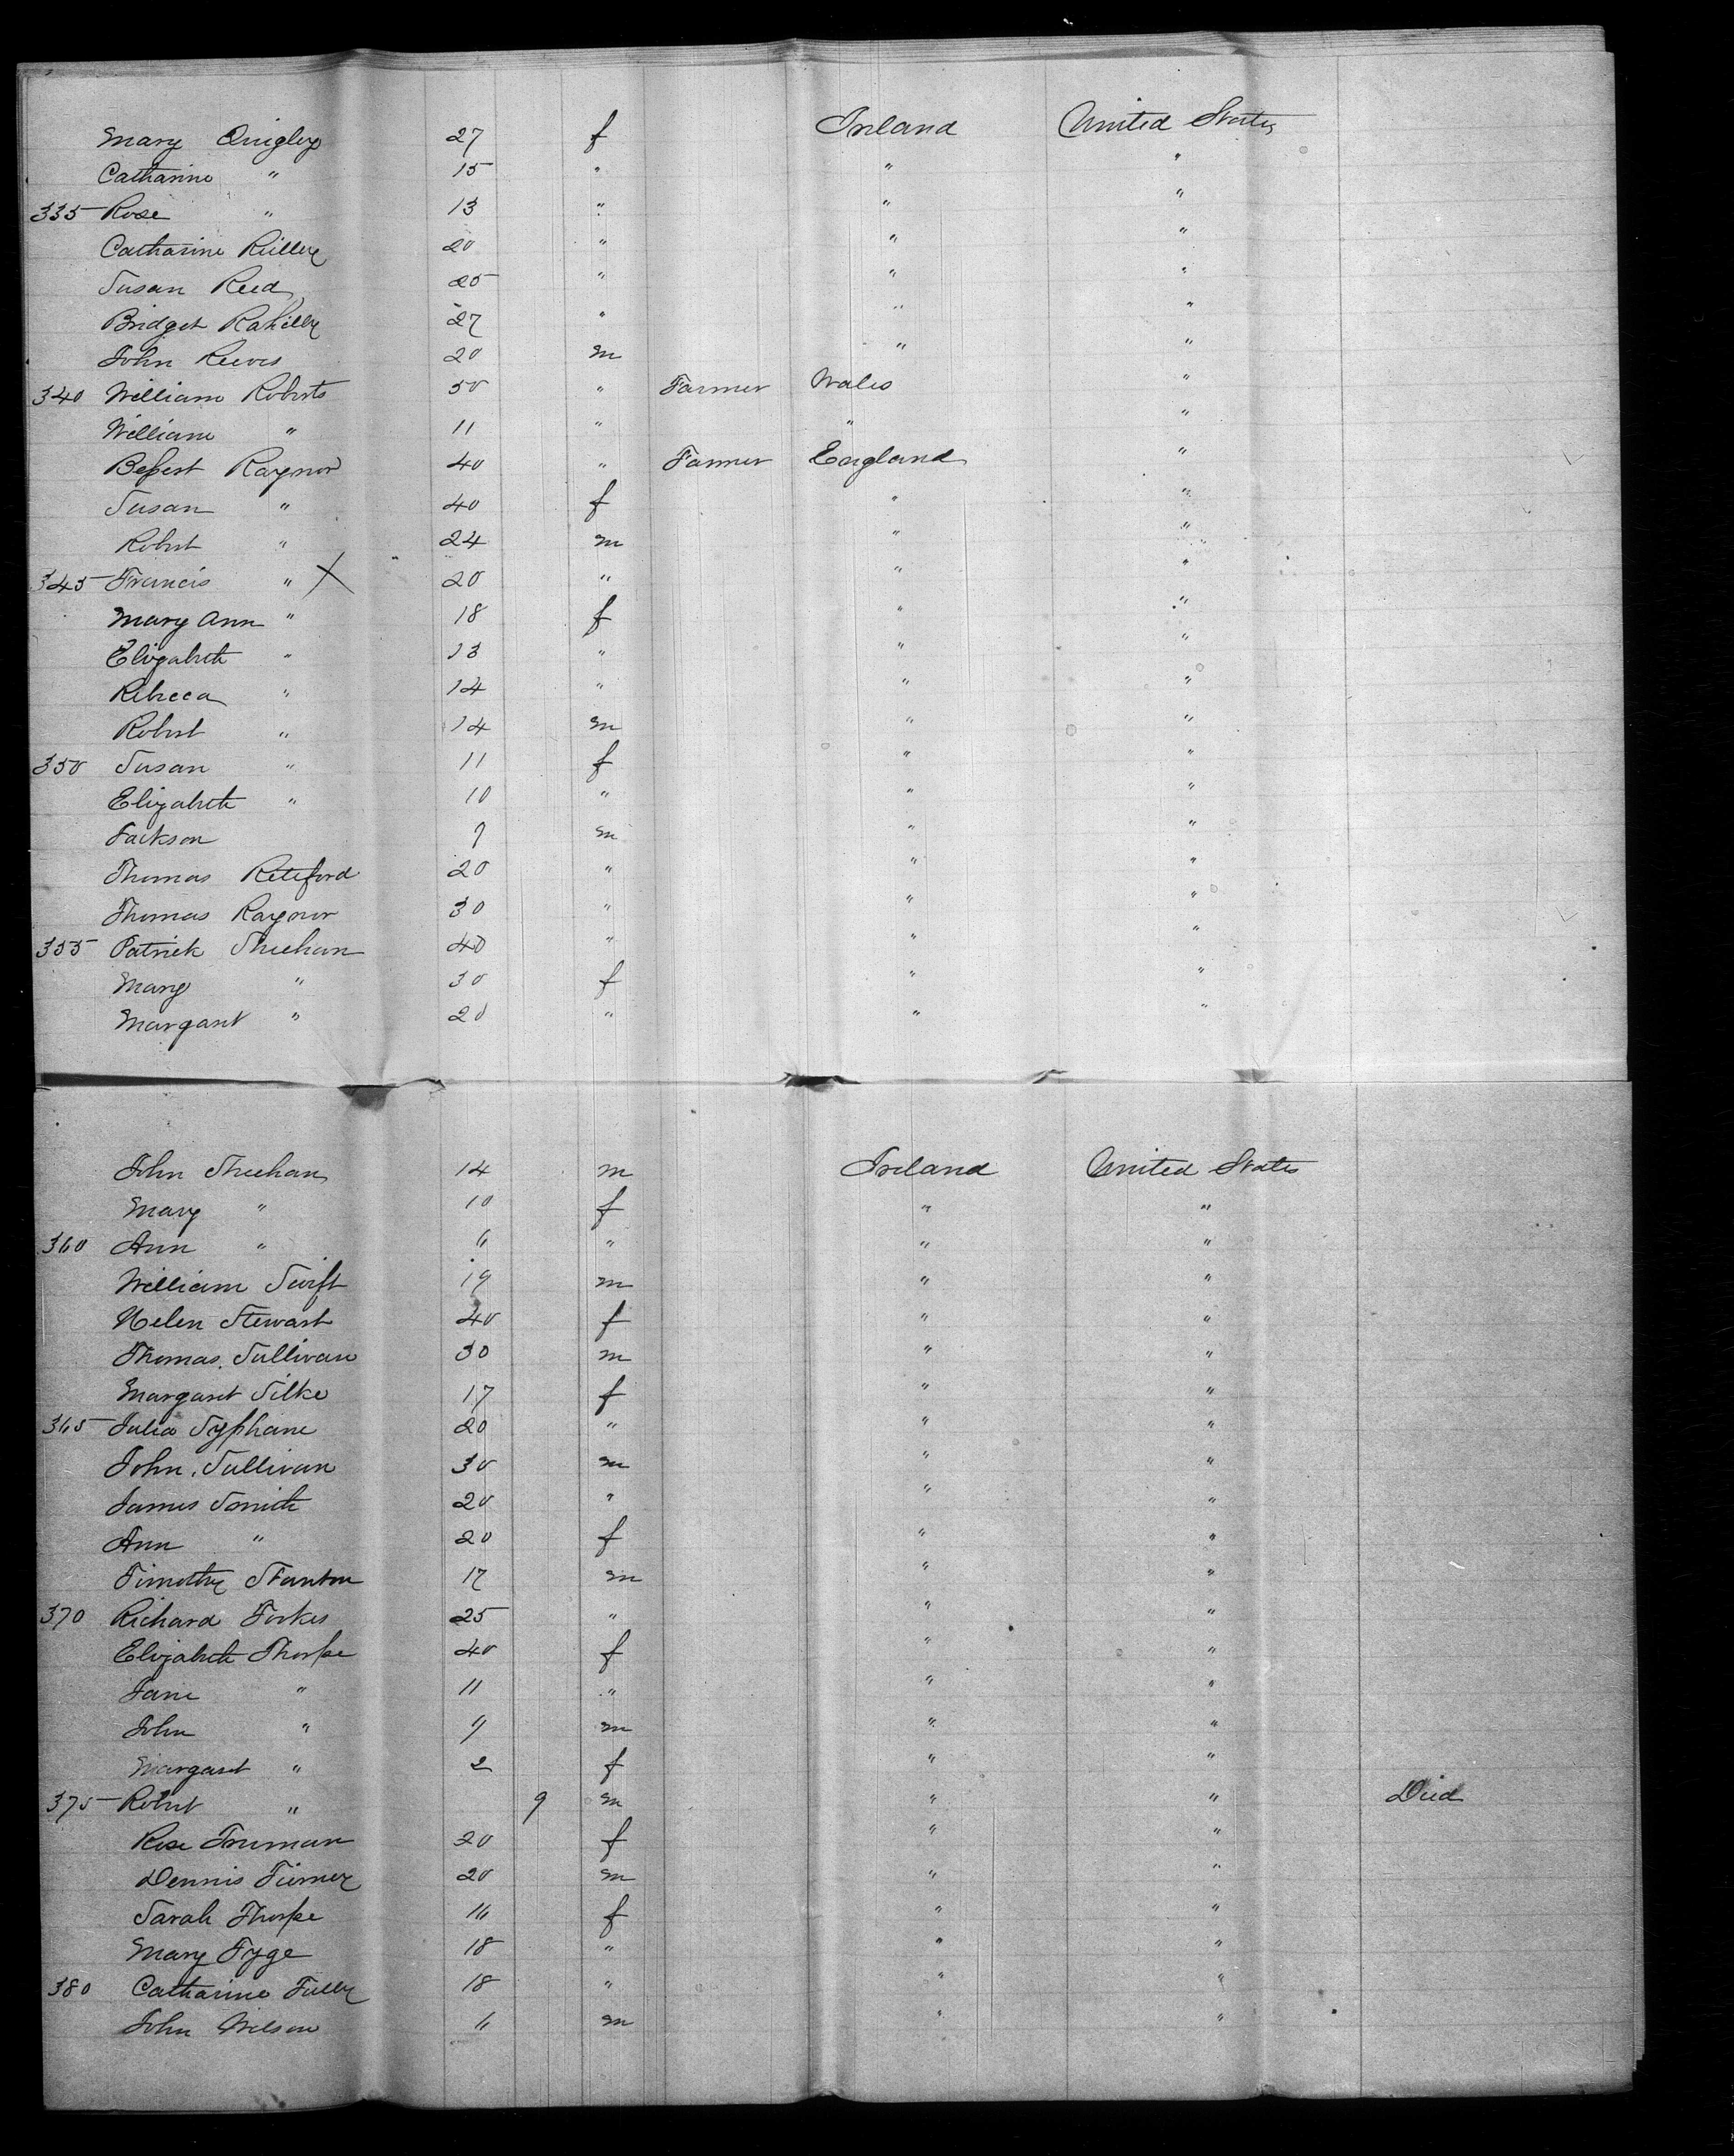 Mary Quigley 27 f Ireland United States
Catharine " 15 " " "
335 Rose " 13 " " "
Catharine Reilly 20 " " "
Susan Reed 25 " " "
Bridget Rahilly 27 " " "
John Reeves 20 m " "
340 William Roberts 50 " Farmer Wales "
William " 11 " " "
Raynor 40 " Farmer England "
Susan " 40 f " "
Robert " 24 m " "
345 Francis " X 20 " " "
Mary Ann " 18 f " "
Elizabeth " 13 " " "
Rebecca " 14 " " "
Robert " 14 m " "
350 Susan " 11 f " "
Elizabeth " 10 " " "
Jackson 9 m " "
Thomas Reteford 20 " " "
Thomas Raynor 30 " " "
355 Patrick Sheehan 40 " " "
Mary " 30 f " "
Margaret " 20 " " "
John Sheehan 14 m Ireland United States
Mary " 10 f " "
360 Ann " 6 " " "
William Swift 19 m " "
Helen Stewart 40 f " "
Thomas Sullivan 30 m " "
Margaret Silke 17 f " "
365 Julia Syphane 20 " " "
John Sullivan 30 m " "
James Smith 20 " " "
Ann " 20 f " "
Timothy Stanton 17 m " "
370 Richard Forkes 25 " " "
Elizabeth Thorpe 40 f " "
Jane " 11 " " "
John " 9 m " "
Margaret " 2 f " "
375 Robert " 9 m " " Died
Rose Truman 20 f " "
Dennis 20 m " "
Sarah Thorpe 16 f " "
Mary Tyge 18 " " "
380 Catharine Tully 18 " " "
John Wilson 6 m " "